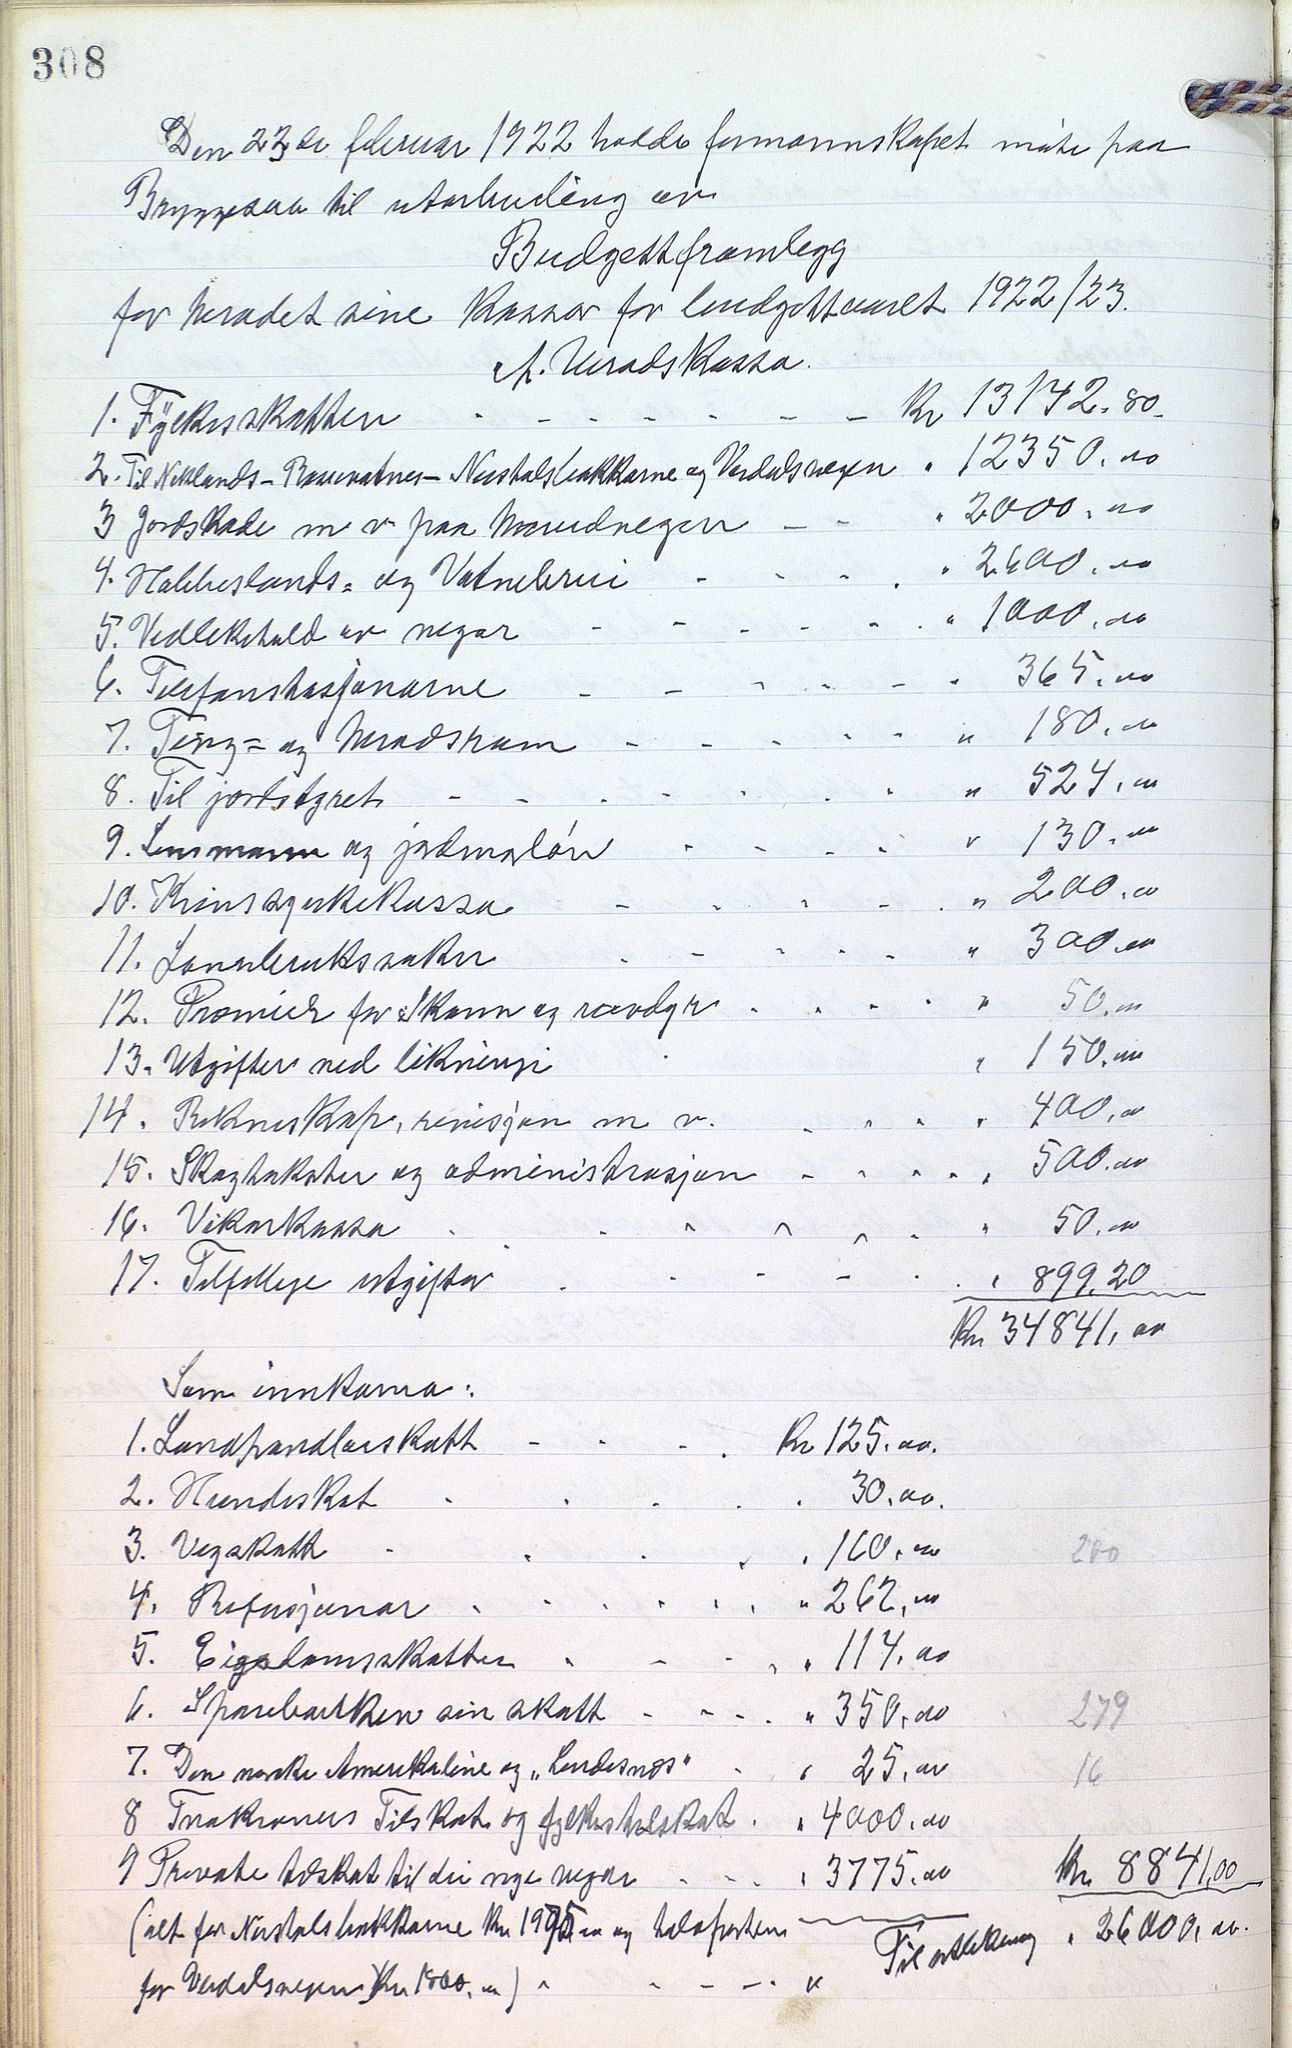 308
Den 23de februar 1922 hadde formannskapet møte paa
Bryggesaa til utarbeiding av
Budgettframlegg
for heradet sine kassar for budgettaaret 1922/23.
A. Heradskassa.
1. Fylkesskatten - - - - - - - Kr 13142.80.
2. Til Neklands- Rossevatnes- Nestalsbakkarne og Verdalsvegen " 12350.00
3 Jordskade m v paa hovudvegen - - " 2000.00
4. Habbeslands- og Vatnebrui - - - - " 2600.00
5. Vedlikehald av vegar - - - - - - " 1000.00
6. Telefonstasjonarne - - - - - " 365.00
7. Ting- og heradsrom - - - - - " 180.00
8. Til jordstyret - - - - - - - " 524.00
9. Lensmann og jordmorløn - - - - " 130.00
10. Krinssjukekassa - - - - - " 200.00
11. Landbrukssaker - - - - - " 300.00
12. Premier for skarv og rovdyr - - - - " 50.00
13. Utgifter ved likningi " 150.00
14. Rekneskap, revisjon m v. - - - " 400.00
15. Skogtakster og administrasjon - - - - " 500.00
16. Vikarkassa - - - - - - " 50.00
17. Tilfellege utgifter - - - - - " 899.20
Kr. 34841,00
Som innkoma:
1. Landhandlarskatt - - - - Kr 125.00.
2. Hundeskat - - - - - 30.00.
3. Vegskatt - - - - " 160.00 200
4. Refusjonar - - - - - - " 262,00
5. Eigedomsskatten - - - - " 114.00
6. Sparebanken sin skatt - - - - " 350.00 279
7. Den norske Amerikaline og "Lindesnes" - " 25.00 16
8 Trækroners Tilskot og fylkestilskot. " 4000.00
9 Private tilskot til dei nye vegar - - - " 3775.00 Kr. 8841,00
(alt for Nestalsbakkarne Kr. 1975.00 og halvparten
Til utlikning " 26000,00.
for Verdalsvegen Kr. 1800.00) - - - - - "